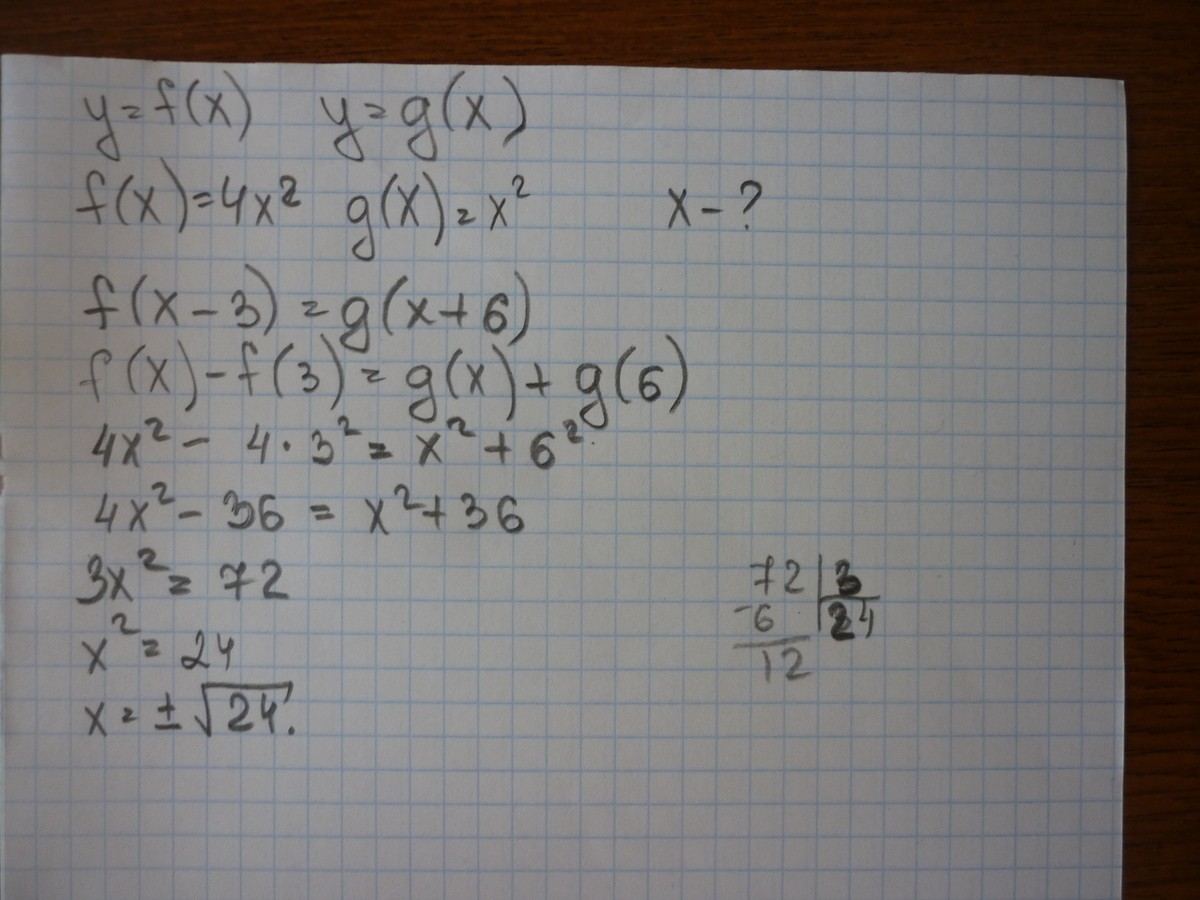 y = f(x) y = g(x)
f(x) = 4x² g(x) = x² x - ?
f(x - 3) = g(x + 6)
f(x) - f(3) = g(x) + g(6)
4x² - 4 · 3² = x² + 6²
4x² - 36 = x² + 36
3x² = 72
x² = 24
x = ± √24.
72 | 3
-6 | 24
12